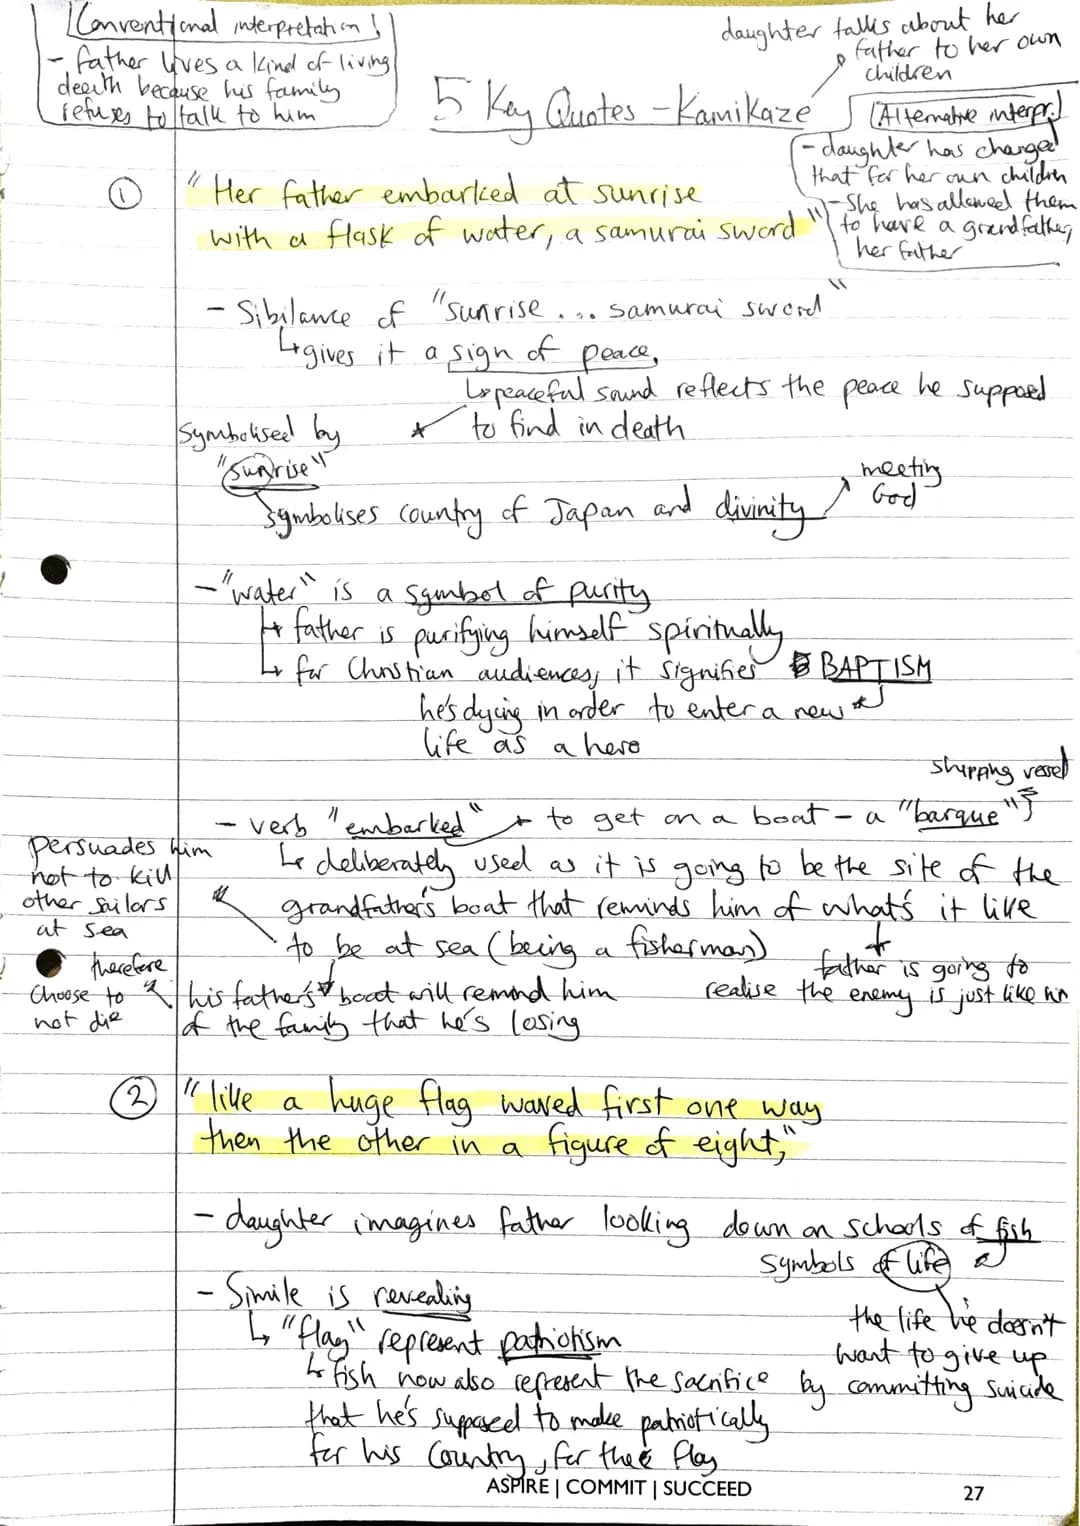 Conventional interpretation
- father lives a kind of living
death because his family
refuses to talk to him
daughter talks about her
father to her own
children
5 Key Quotes - Kamikaze
Alternative interpr.
- daughter has changed
that for her own children
- She has allowed them
to have a grandfather,
her father
① "Her father embarked at sunrise
with a flask of water, a samurai sword"
- Sibilance of "sunrise ... samurai sword"
↳ gives it a sign of peace,
↳ peaceful sound reflects the peace he supposed
to find in death
Symbolised by
"sunrise"
symbolises country of Japan and divinity
meeting
God
- "water" is a symbol of purity
↳ father is purifying himself spiritually
↳ for Christian audiences, it signifies BAPTISM
he's dying in order to enter a new
life as a hero
shipping vessel
- verb "embarked" → to get on a boat - a "barque"
↳ deliberately used as it is going to be the site of the
grandfather's boat that reminds him of what's it like
to be at sea (being a fisherman)
father is going to
realise the enemy is just like him
his father's boat will remind him
of the family that he's losing
persuades him
not to kill
other sailors
at sea
therefore
choose to
not die
② "like a huge flag waved first one way
then the other in a figure of eight,"
- daughter imagines father looking down on schools of fish
symbols of life
the life he doesn't
want to give up
by committing suicide
- Simile is revealing
↳ "flag" represent patriotism
↳ fish now also represent the sacrifice
that he's supposed to make patriotically
for his country, for the flag
ASPIRE | COMMIT | SUCCEED
27